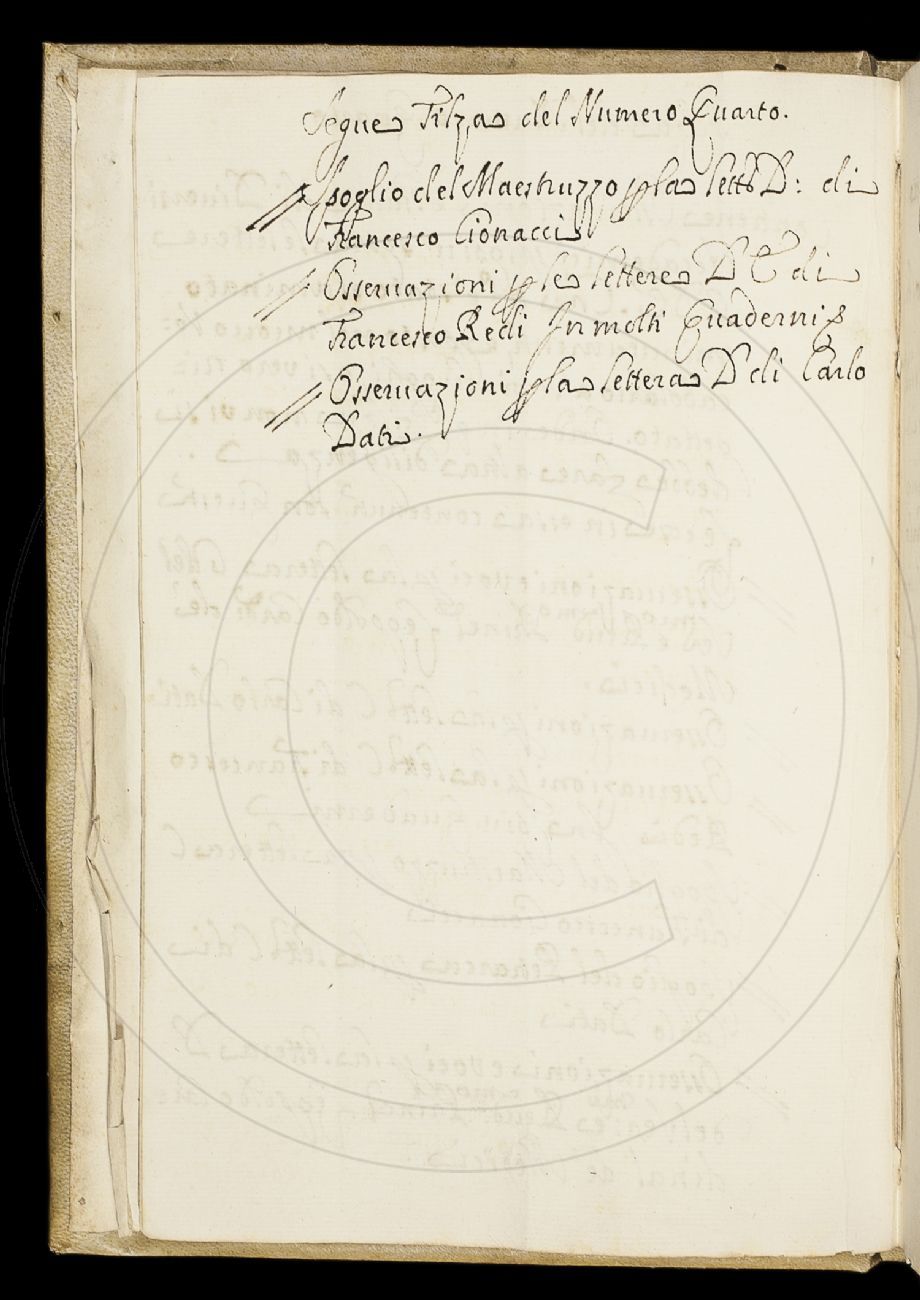 Segue Filza del Numero Quarto.
Spoglio del Maestruzzo p la lett.ª D: di
Francesco Cionacci
Osservazioni p le lettere D C di
Francesco Redi In molti Quaderni
Osservazioni p la lettera D di Carlo
Dati.